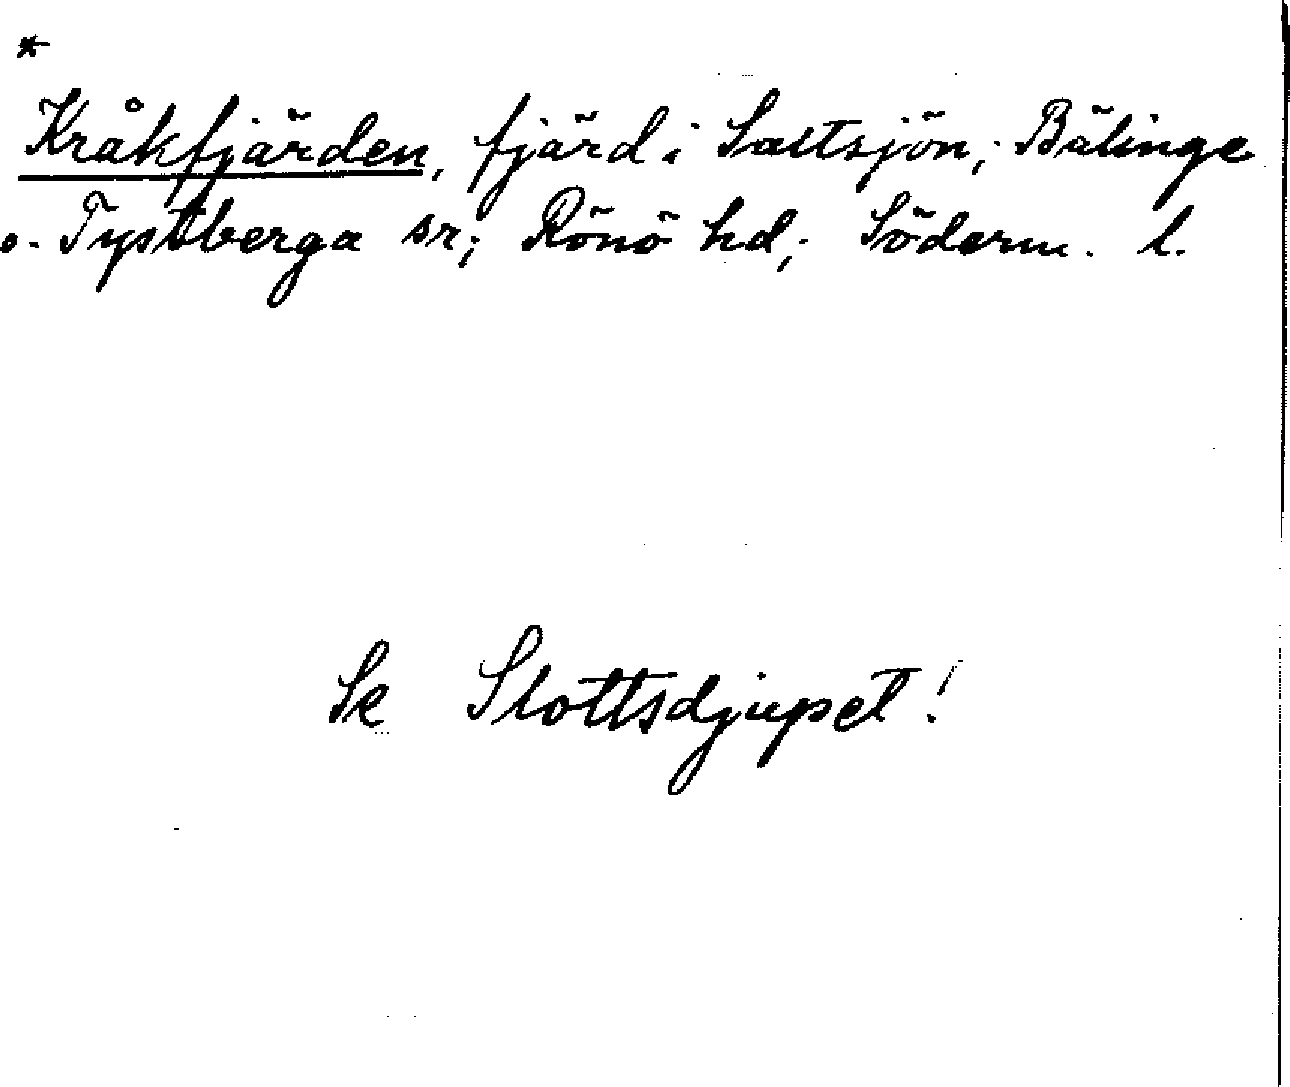 *
Kråkfjärden, fjärd i Saltsjön; Bälinge
o. Tystberga sr; Rönö hd; Söderm. l.
Se Slottsdjupet!